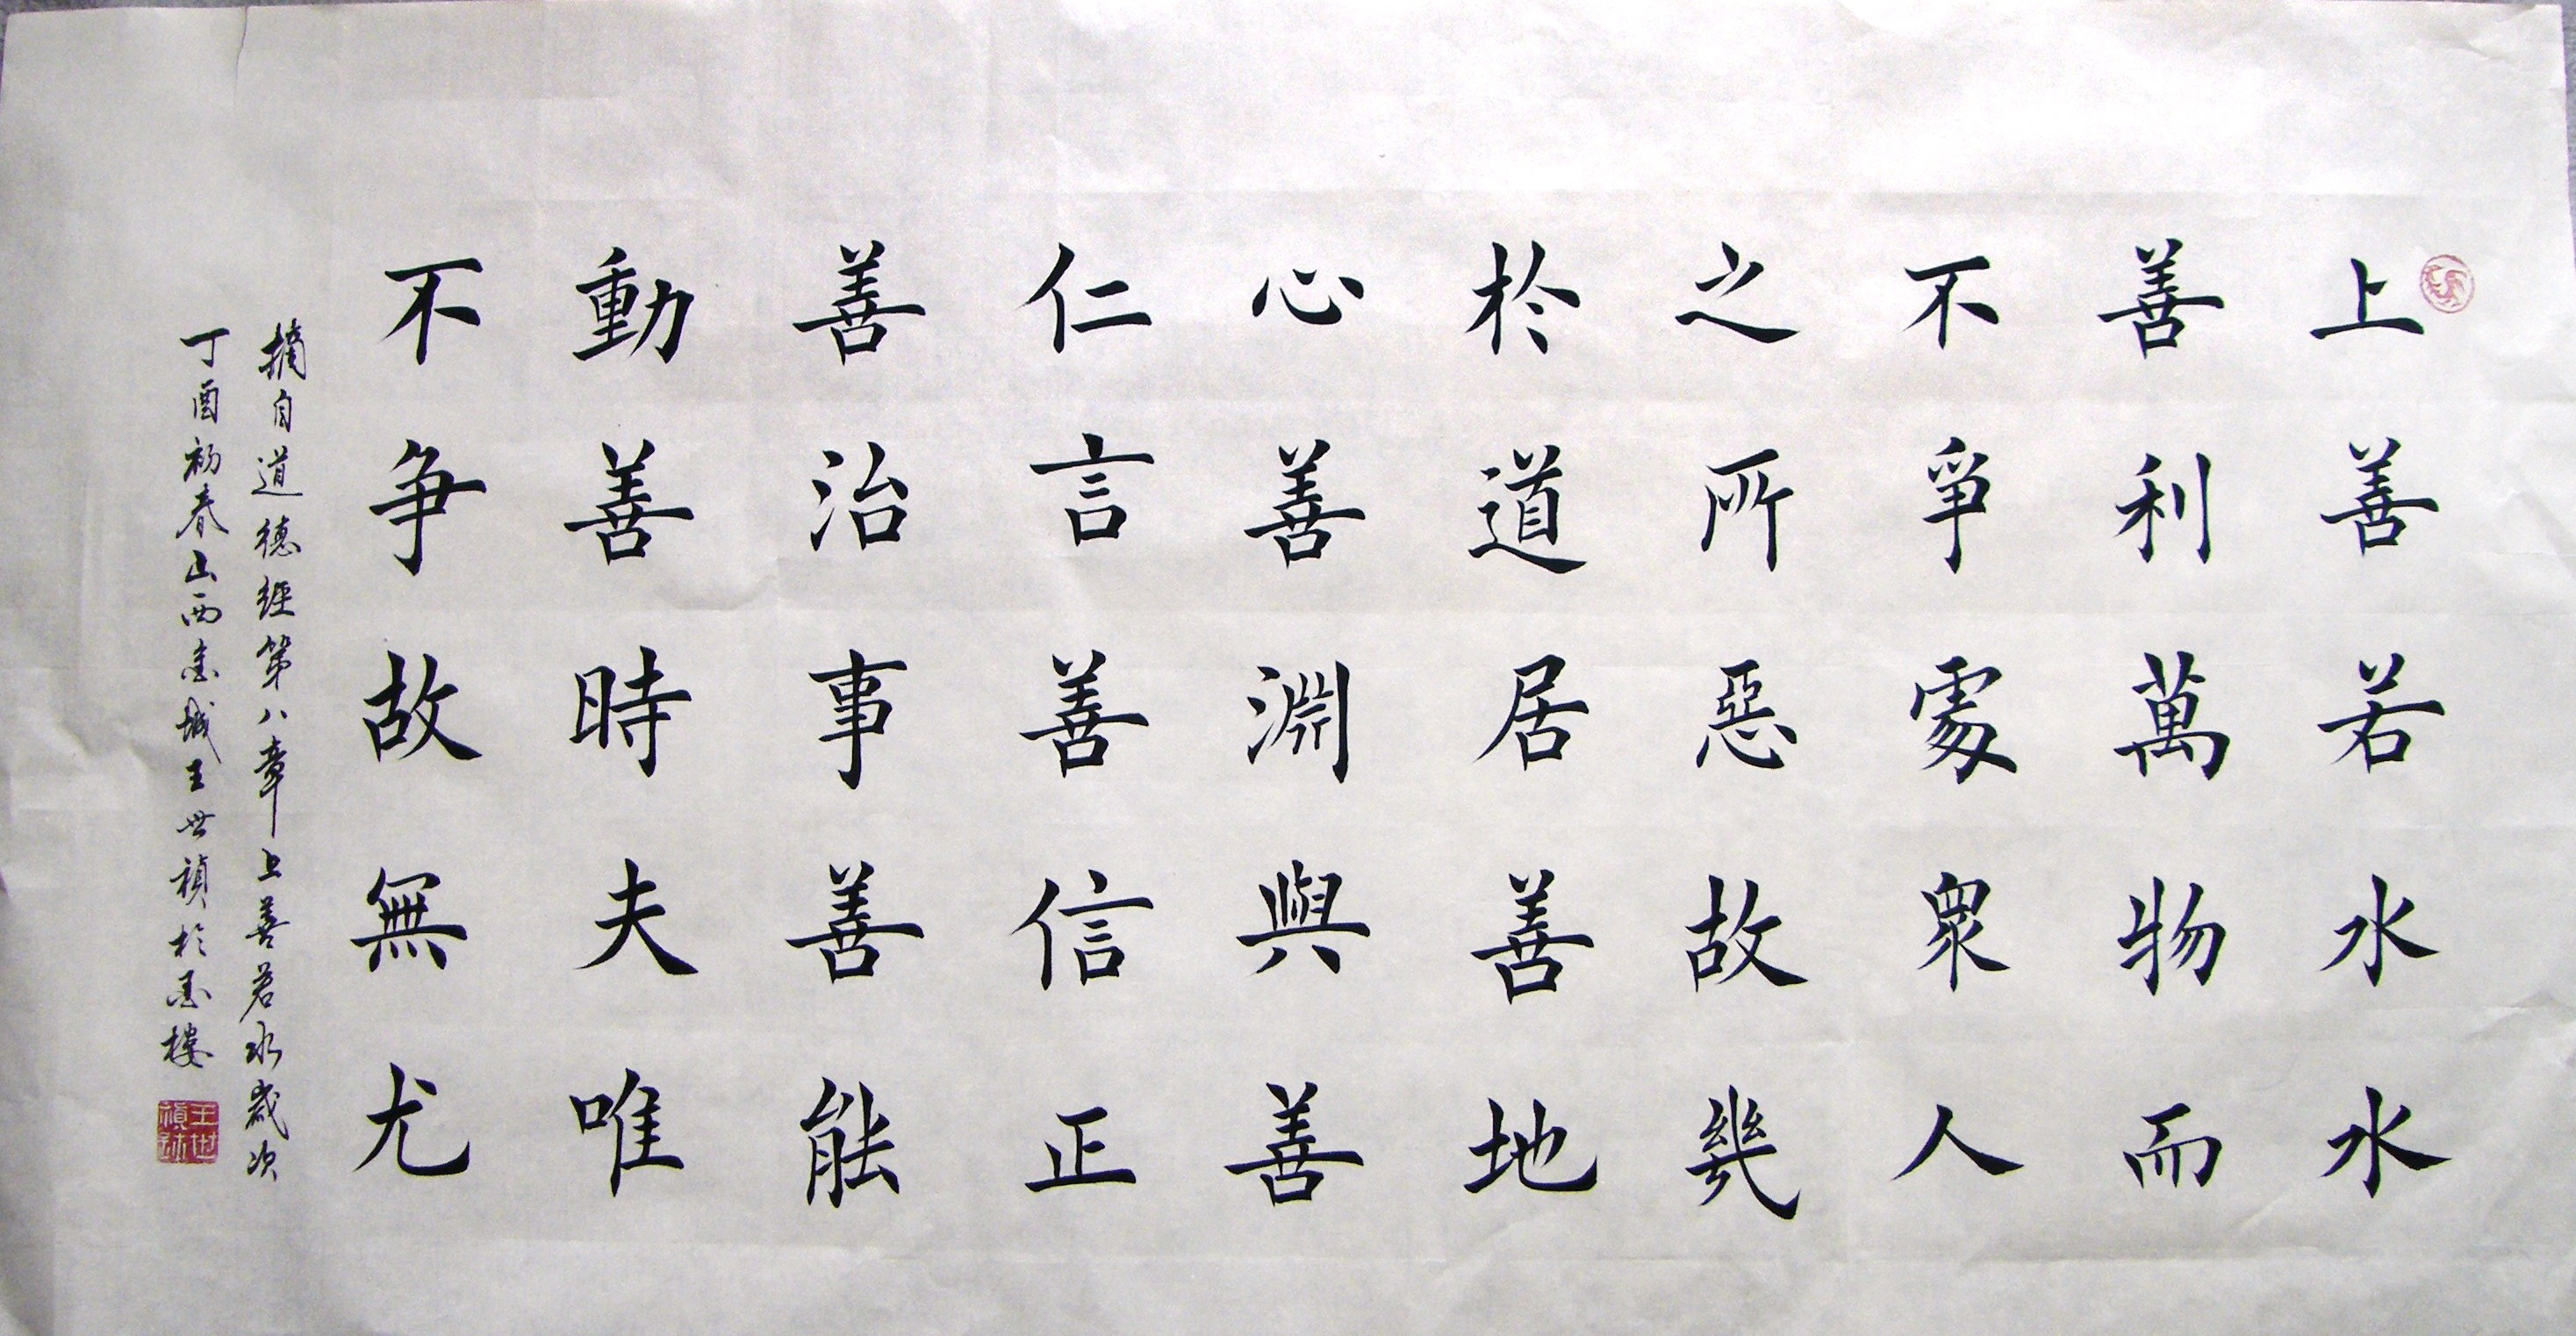 上善若水水
善利萬物而
不爭處衆人
之所惡故幾
於道居善地
心善淵與善
仁言善信正
善治事善能
動善時夫唯
不争故無尤
摘自道德經第八章上善若水歲次
丁酉初春山西古城王世禎於墨樓